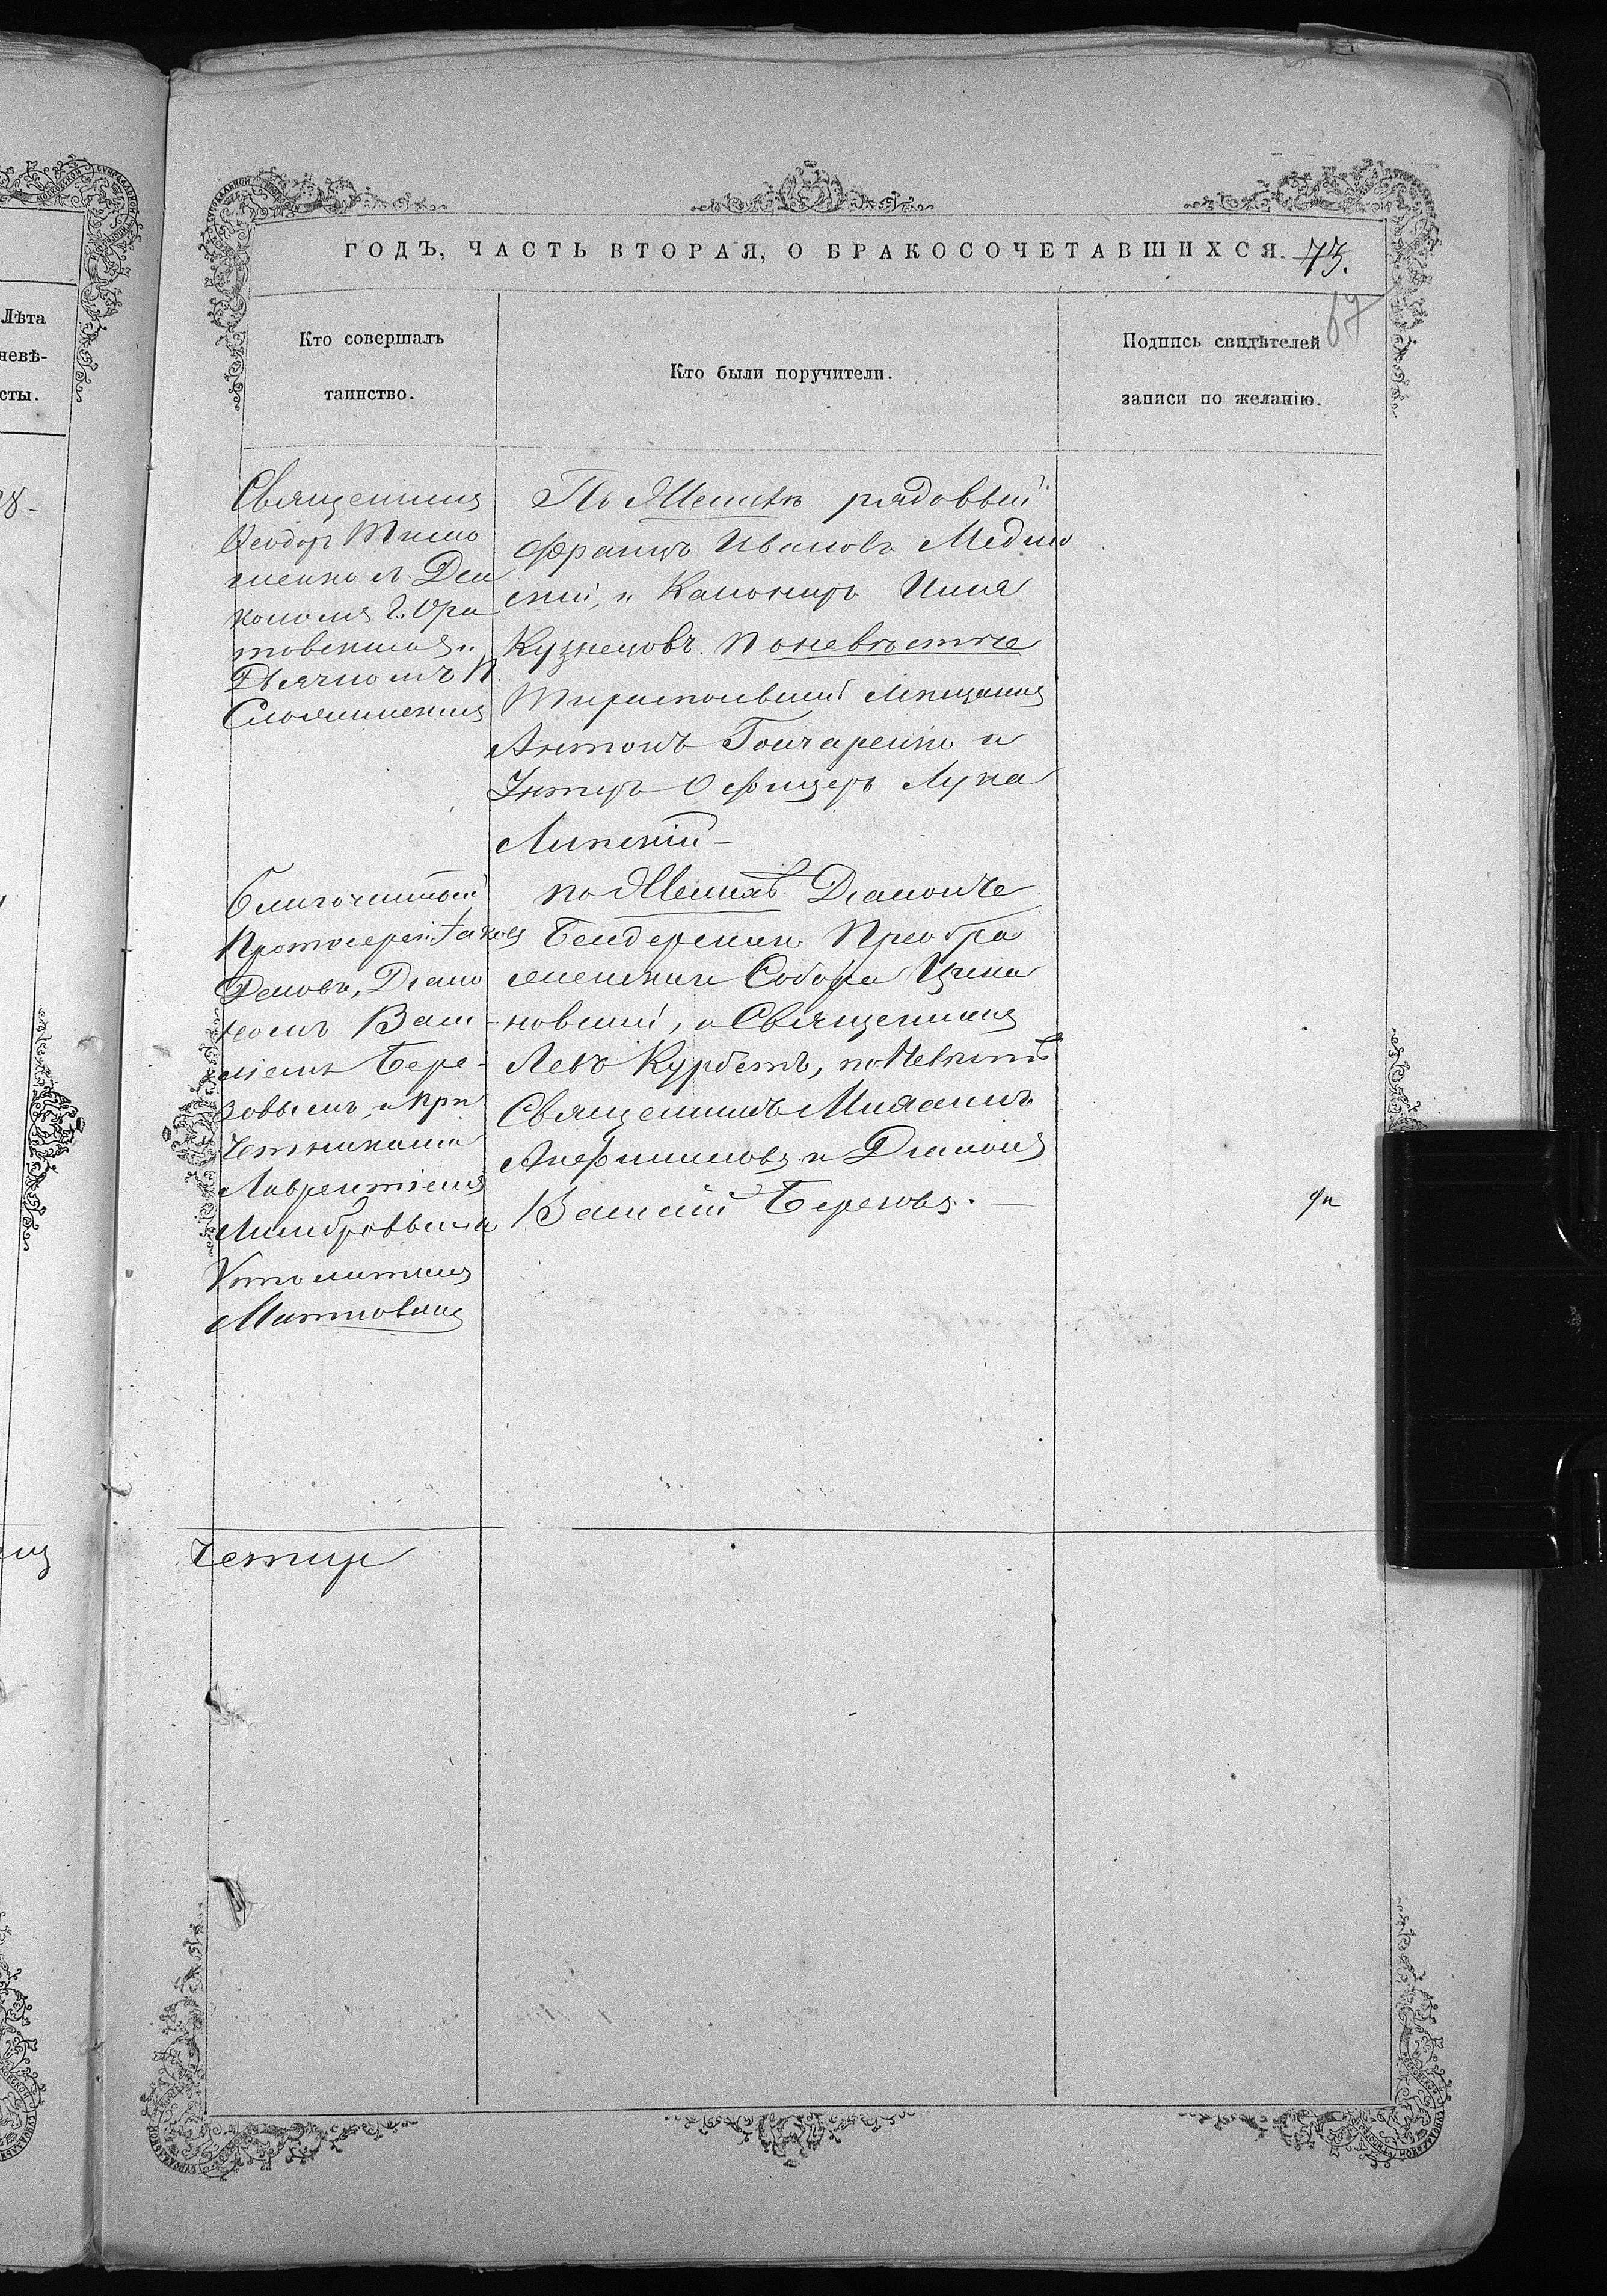 ГОДЪ, ЧАСТЬ ВТОРАЯ, О БРАКОСОЧЕТАВШИХСЯ. 73.
67
Лѣта
невѣ-
сты.
Кто совершалъ
таинство.
Кто были поручители.
Подпись свидѣтелей
записи по желанію.
Священникъ
Ѳеодоръ Тимо
шенко съ Діа
кономъ Г. Ора
товскимъ и
Дьячкомъ П.
По Женихѣ рядовый
Францъ Ивановъ Медин
скій, и Канониръ Илія
Кузнецовъ. По невѣстѣ
Тираспольскій мѣщанинъ
Антонъ Гончаренко и
Унтеръ Офицеръ Лука
Липскій -
Благочинный
Протоіерей Іаковъ
Діако
номъ Васи
ліемъ Бере-
зовымъ, и При
четниками
Лаврентіемъ
и
Ипполитомъ
по Женихѣ Діаконъ
Бендерскаго Преобра
женскаго Собора
и Священникъ
Левъ Курбетъ, по Невѣстѣ
Священникъ
и Діаконъ
Василій Березовъ. —
Четыре